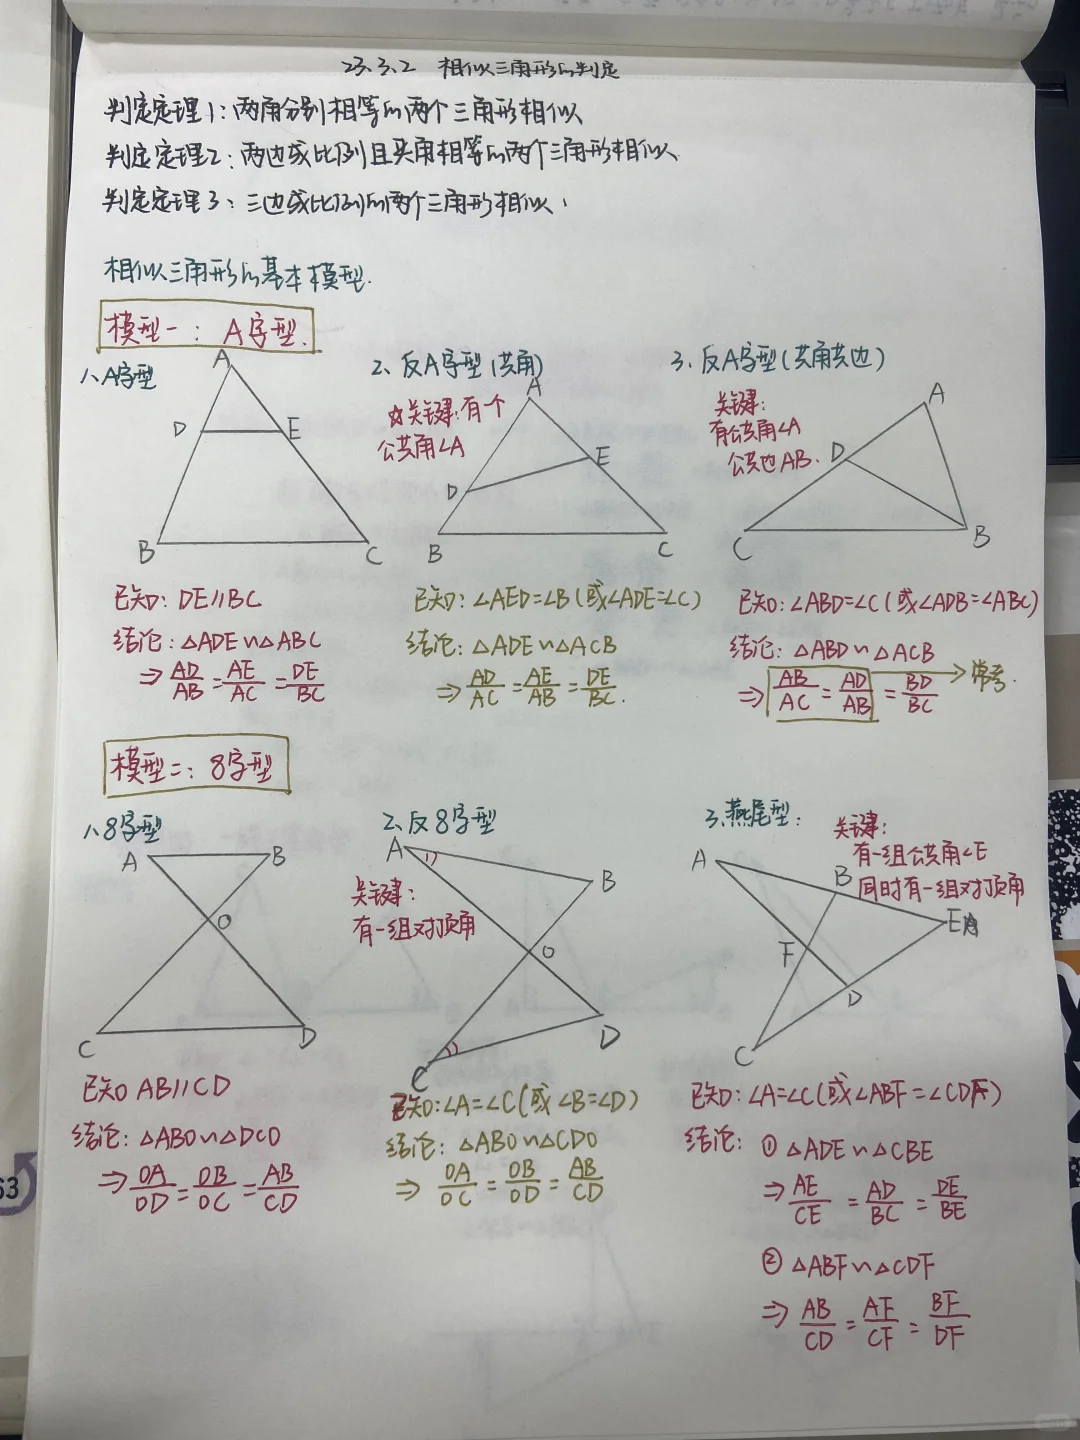 23.3.2 相似三角形的判定
判定定理1：两角分别相等的两个三角形相似
判定定理2：两边成比例且夹角相等的两个三角形相似.
判定定理3：三边成比例的两个三角形相似.
相似三角形的基本模型.
模型一：A字型.
1、A字型
A
D E
B C
已知：DE∥BC
结论：△ADE∽△ABC
⇒ AD/AB = AE/AC = DE/BC
2、反A字型(共角)
☆关键：有个
公共角∠A
A
E
D
B C
已知：∠AED=∠B(或∠ADE=∠C)
结论：△ADE∽△ACB
⇒ AD/AC = AE/AB = DE/BC.
3、反A字型(共角共边)
关键：
有公共角∠A
公共边AB.
A
D
C B
已知：∠ABD=∠C(或∠ADB=∠ABC)
结论：△ABD∽△ACB
⇒ AB/AC = AD/AB = BD/BC
常考.
模型二：8字型
1、8字型
A B
O
C D
已知 AB∥CD
结论：△ABO∽△DCO
⇒ OA/OD = OB/OC = AB/CD
2、反8字型
关键：
有一组对顶角
A
B
O
D
C
已知：∠A=∠C(或∠B=∠D)
结论：△ABO∽△CDO
⇒ OA/OC = OB/OD = AB/CD
3、燕尾型：
关键：
有一组公共角∠E
同时有一组对顶角
A
B
E
F
D
C
已知：∠A=∠C(或∠ABF=∠CDF)
结论：① △ADE∽△CBE
⇒ AE/CE = AD/BC = DE/BE
② △ABF∽△CDF
⇒ AB/CD = AF/CF = BF/DF
63